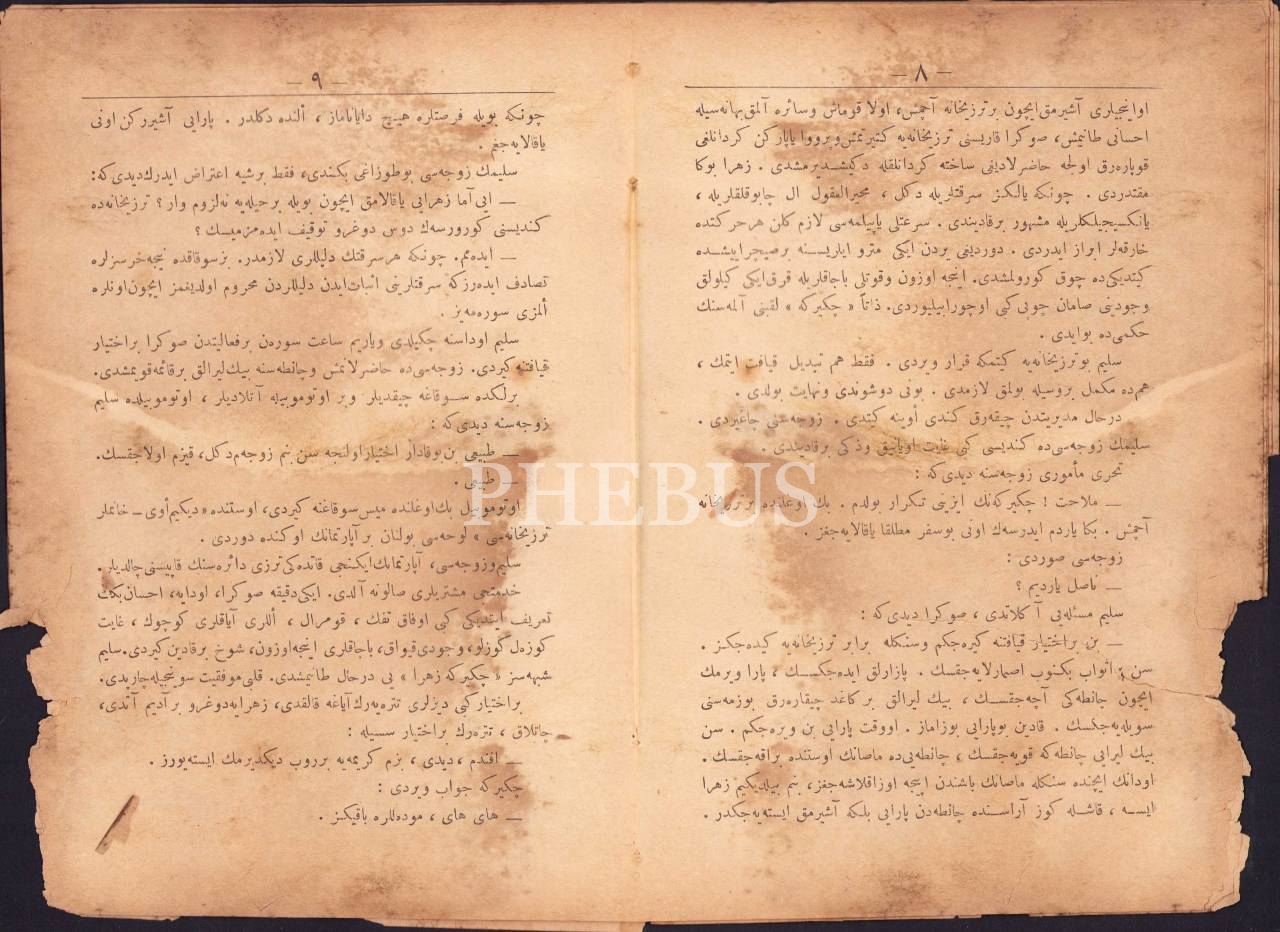 — ٨ —
اواینجیلری آشیرمق ایچون بر ترزیخانه آچمش، اولا قوماش وسائره آلمق بهانه سیله
احسانی طانیمش، صوکرا قاریسنی ترزیخانه یه کتیرتمش وبرووا یاپارکن کردانلغی
قوپاره رق اولجه حاضرلادیغی ساخته کردانلقله دکیشدیرمشدی . زهرا بوکا
مقتدردی . چونکه یالکز سرقتلریله دکل ، محیرالعقول ال چابوقلقلریله ،
یانکسیجیلکلریله مشهور برقادیندی . سرعتلی یاپیلمه سی لازم کلن هر حرکتده
خارقه لر ابراز ایدردی . دوردیغی یردن ایکی مترو ایلریسنه برصیچراییشده
کیتدیکی ده چوق کورولمشدی. اینجه اوزون وقوتلی باجاقلریله قرق ایکی کیلولق
وجودینی صامان چوپی کبی اوچورابیلیوردی. ذاتاً « چکیرکه » لقبنی آلمه سنک
حکمی ده بوایدی .
سلیم بوترزیخانه یه کیتمکه قرار ویردی . فقط هم تبدیل قیافت ایتمک ،
هم ده مکمل بروسیله بولمق لازمدی . بونی دوشوندی ونهایت بولدی .
درحال مدیریتدن چیقه رق کندی أوینه کیتدی . زوجه سنی چاغیردی .
سلیمک زوجه سی ده کندیسی کبی غایت اویانیق وذکی برقادیندی .
تحری مأموری زوجه سنه دیدی که :
— ملاحت ! چکیرکه نک ایزینی تکرار بولدم . بک اوغلنده بر ترزیخانه
آچمش . بکا یاردم ایدرسه ک اونی بوسفر مطلقا یاقالایه جغز .
زوجه سی صوردی :
— ناصل یاردیم ؟
سلیم مسئله یی آ کلاتدی ، صوکرا دیدی که :
— بن براختیار قیافتنه کیره جکم وسنکله برابر ترزیخانه یه کیده جکز .
سن اثواب بکنوب اصمارلایه جقسک . پازارلق ایده جکسک ، پارا ویرمک
ایچون چانطه کی آچه جقسک ، بیک لیرالق بر کاغد چیقاره رق بوزمه سنی
سویله یه جکسک . قادین بوپارایی بوزاماز . اووقت پارایی بن ویره جکم . سن
بیک لیرایی چانطه که قویه جقسک ، چانطه یی ده ماصانک اوستنده براقه جقسک .
اودانک ایچنده سنکله ماصانک باشندن اییجه اوزاقلاشه جغز، بنم بیلدیکیم زهرا
ایسه ، قاشله کوز آراسنده چانطه دن پارایی بلکه آشیرمق ایسته یه جکدر .
— ٩ —
چونکه بویله فرصتلره هیچ دایاناماز ، ألنده دکلدر . پارایی آشیررکن اونی
یاقالایه جغم .
سلیمک زوجه سی بوطوزاغی بکندی، فقط برشیه اعتراض ایدرک دیدی که:
— ایی آما زهرایی یاقالامق ایچون بویله برحیله یه نه لزوم وار ؟ ترزیخانه ده
کندیسنی کورورسه ک دوس دوغرو توقیف ایده مزمیسک ؟
— ایده مم. چونکه هرسرقتک دلیللری لازمدر. بزسوقاقده نیجه خرسزلره
تصادف ایده رزکه سرقتلرینی اثبات ایدن دلیللردن محروم اولدیغمز ایچون اونلره
ألمزی سوره مه یز .
سلیم اوداسنه چکیلدی ویاریم ساعت سوره ن برفعالیتدن صوکرا براختیار
قیافتنه کیردی. زوجه سی ده حاضرلانمش وچانطه سنه بیک لیرالق برقائمه قویمشدی.
برلکده سوقاغه چیقدیلر وبر اوتوموبیله آتلادیلر ، اوتوموبیلده سلیم
زوجه سنه دیدی که :
— طبیعی بن بوقادار اختیار اولنجه سن بنم زوجه م دکل، قیزم اولاجقسک.
— طبیعی .
اوتوموبیل بک اوغلنده میس سوقاغنه کیردی، اوستنده « دیکیم أوی — خانملر
ترزیخانه سی » لوحه سی بولنان بر آپارتمانک اوکنده دوردی .
سلیم وزوجه سی، آپارتمانک ایکنجی قاتنده کی ترزی دائره سنک قاپیسنی چالدیلر.
خدمتجی مشتریلری صالونه آلدی. ایکی دقیقه صوکرا، اودایه، احسان بکک
تعریف ایتدیکی کبی اوفاق تفک ، قومرال ، أللری آیاقلری کوچوک ، غایت
کوزه ل کوزلو، وجودی قیواق، باجاقلری اینجه اوزون، شوخ برقادین کیردی. سلیم
شبهه سز « چکیرکه زهرا » یی درحال طانیمشدی. قلبی موفقیت سوینجیله چارپدی.
براختیار کبی دیزلری تتره یه رک آیاغه قالقدی، زهرایه دوغرو برآدیم آتدی،
چاتلاق ، تتره رک براختیار سسیله :
— افندم ، دیدی ، بزم کریمه یه بر روب دیکدیرمک ایسته یورز .
چکیرکه جواب ویردی :
— های های ، موده للره باقیکز .
PHEBUS